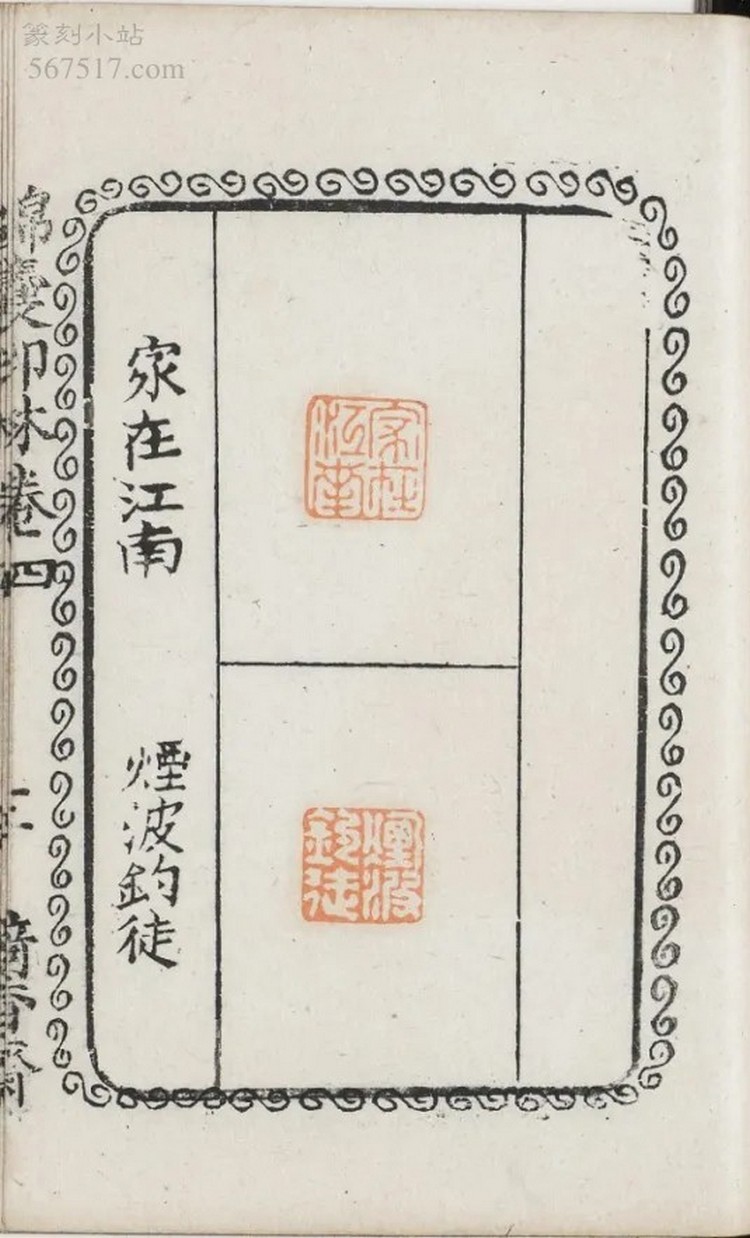 篆刻小站
567517.com
家在江南
煙波釣徒
家在江南
煙波釣徒
錦囊印林卷四